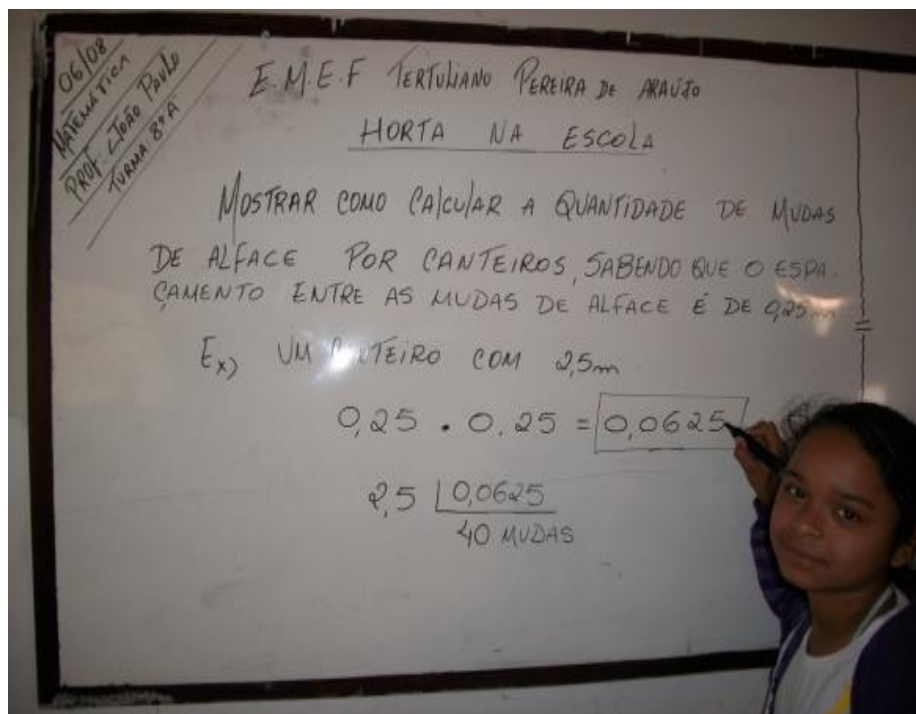 06/08
MATEMÁTICA
PROF. JOÃO PAULO
TURMA 8ª A
E.M.E.F TERTULIANO PEREIRA DE ARAÚJO
HORTA NA ESCOLA
MOSTRAR COMO CALCULAR A QUANTIDADE DE MUDAS
DE ALFACE POR CANTEIROS, SABENDO QUE O ESPA-
ÇAMENTO ENTRE AS MUDAS DE ALFACE É DE 0,25m
Ex) UM CANTEIRO COM 2,5m
0,25 . 0,25 = 0,0625
2,5 0,0625
40 MUDAS